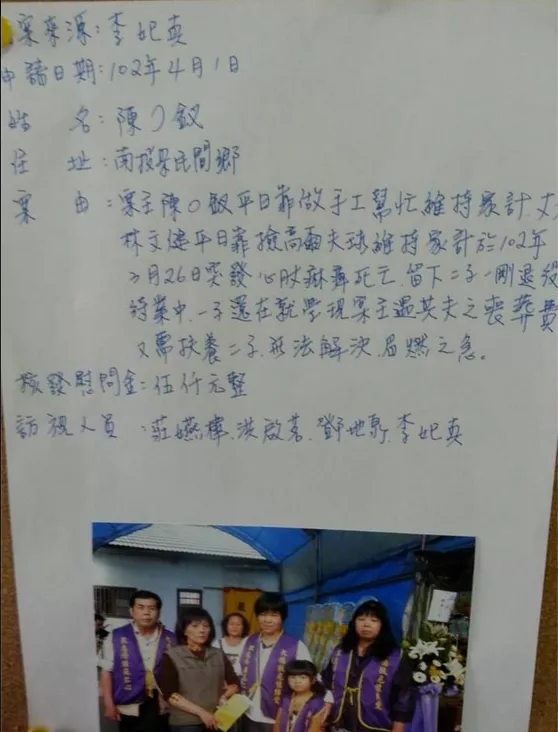 案來源:李妃真
申請日期:102年4月1日
姓 名:陳〇釵
住 址:南投県民間鄉
案 由:案主陳〇釵平日靠做手工幫忙維持家計,丈
林文健平日靠撿高爾夫球維持家計於102年
3月26日突發心肌麻痺死亡,留下二子一剛退役
待業中,一子還在就學現案主遇其夫之喪葬費
又需扶養二子,無法解決眉燃之急。
核發慰問金:伍仟元整
訪視人員:莊嬿樺.洪啟茗.鄧地 .李妃真